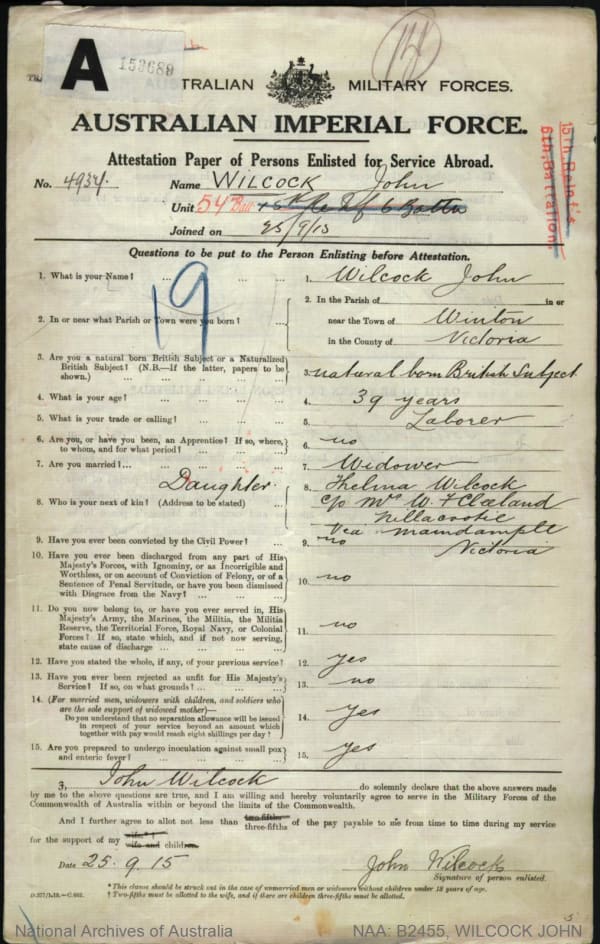 A 153689
TRALIAN MILITARY FORCES.
AUSTRALIAN IMPERIAL FORCE.
15th Reinf's
6th. Battalion.
Attestation Paper of Persons Enlisted for Service Abroad.
No. 4934. Name WILCOCK John
Unit 54 Batt 15th Reinf 6 Battn
Joined on 25/9/15
Questions to be put to the Person Enlisting before Attestation.
19
1. What is your Name? ... ... ... 1. Wilcock John
2. In or near what Parish or Town were you born? ... 2. In the Parish of in or
near the Town of Winton
in the County of Victoria
3. Are you a natural born British Subject or a Naturalized
British Subject? (N.B.—If the latter, papers to be
shown.) ... 3. natural born British Subject
4. What is your age? ... 4. 39 years
5. What is your trade or calling? ... 5. Laborer
6. Are you, or have you been, an Apprentice? If so, where,
to whom, and for what period? ... 6. no
7. Are you married?... ... 7. Widower
Daughter.
8. Who is your next of kin? (Address to be stated) ... 8. Thelma Wilcock
c/o Mrs W. F Cleeland
Via
Victoria
9. Have you ever been convicted by the Civil Power? ... 9. no
10. Have you ever been discharged from any part of His
Majesty's Forces, with Ignominy, or as Incorrigible and
Worthless, or on account of Conviction of Felony, or of a
Sentence of Penal Servitude, or have you been dismissed
with Disgrace from the Navy? ... 10. no
11. Do you now belong to, or have you ever served in, His
Majesty's Army, the Marines, the Militia, the Militia
Reserve, the Territorial Force, Royal Navy, or Colonial
Forces? If so, state which, and if not now serving,
state cause of discharge ... 11. no
12. Have you stated the whole, if any, of your previous service? 12. yes
13. Have you ever been rejected as unfit for His Majesty's
Service? If so, on what grounds? ... 13. no
14. (For married men, widowers with children, and soldiers who
are the sole support of widowed mother)—
Do you understand that no separation allowance will be issued
in respect of your service beyond an amount which
together with pay would reach eight shillings per day? ... 14. yes
15. Are you prepared to undergo inoculation against small pox
and enteric fever? ... 15. yes
I, John Wilcock do solemnly declare that the above answers made
by me to the above questions are true, and I am willing and hereby voluntarily agree to serve in the Military Forces of the
Commonwealth of Australia within or beyond the limits of the Commonwealth.
And I further agree to allot not less than two-fifths three-fifths of the pay payable to me from time to time during my service
for the support of my wife* † wife and children.
Date 25. 9. 15 John Wilcock
Signature of person enlisted.
* This clause should be struck out in the case of unmarried men or widowers without children under 18 years of age.
† Two-fifths must be allotted to the wife, and if there are children three-fifths must be allotted.
National Archives of Australia NAA: B2455, WILCOCK JOHN